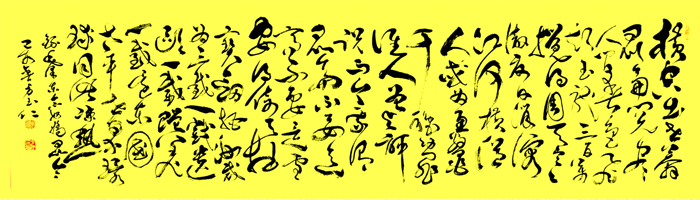 横空出世莽
昆仑阅尽
人间春色飞
起玉龙三百万
搅得周天寒
彻夏日消溶
江河横溢
人或为鱼鳖
千秋功罪
谁人曾与评
说而今我谓
昆仑不要这
高不要这多雪
安得倚天抽
宝剑把汝裁
为三截一截遗
欧一截赠美
一截还东国
太平世界环
球同此凉热